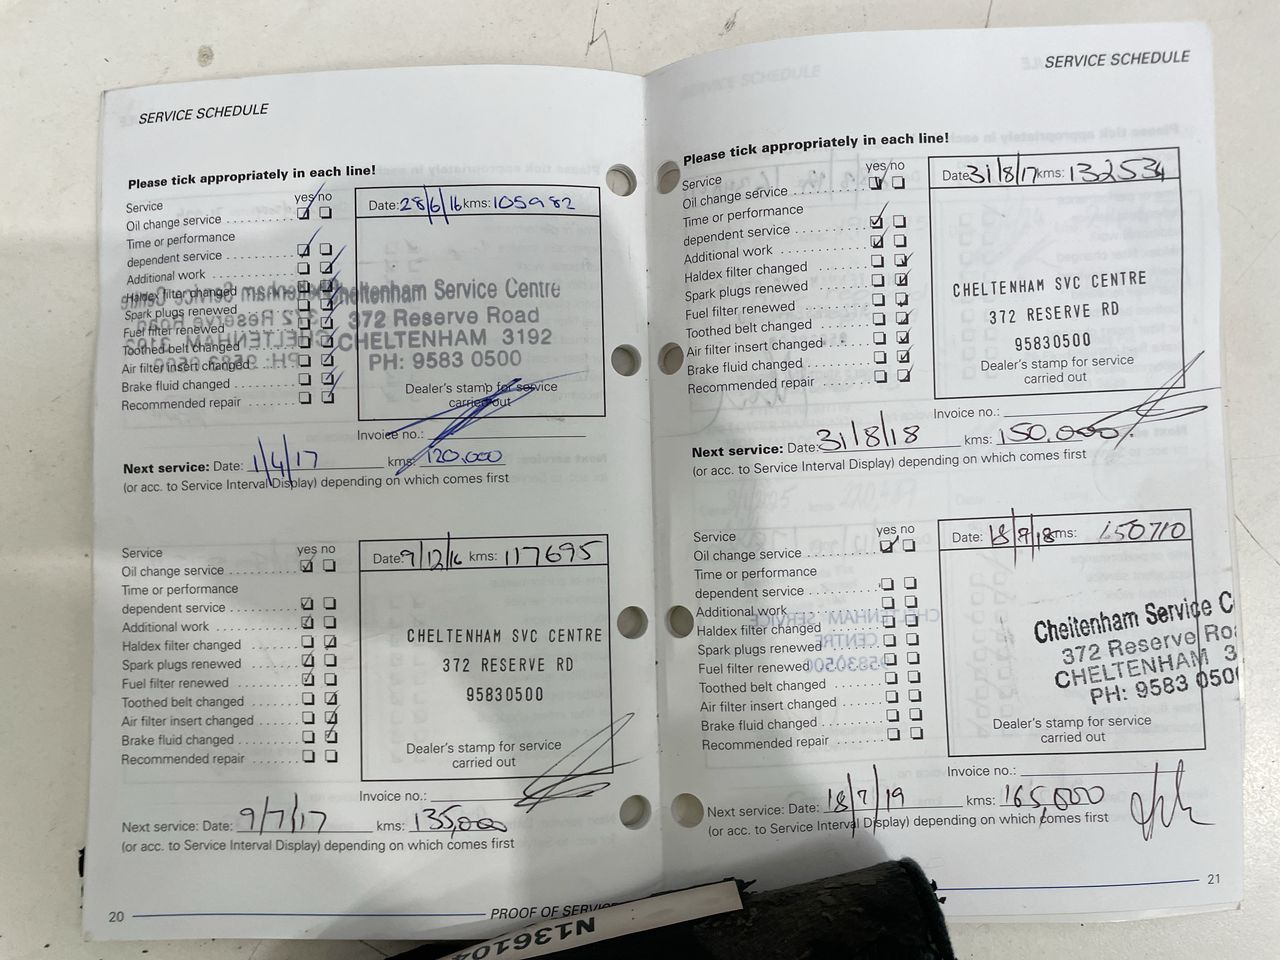 SERVICE SCHEDULE
Please tick appropriately in each line!
Service yes no
Oil change service
Time or performance
dependent service
Additional work
Haldex filter changed
Spark plugs renewed
Fuel filter renewed
Toothed belt changed
Air filter insert changed
Brake fluid changed
Recommended repair
Date: 28/6/16 kms: 105982
Cheltenham Service Centre
372 Reserve Road
CHELTENHAM 3192
PH: 9583 0500
Dealer's stamp for service
carried out
Invoice no.:
Next service: Date: 1/4/17 kms: 120,000
(or acc. to Service Interval Display) depending on which comes first
Service yes no
Oil change service
Time or performance
dependent service
Additional work
Haldex filter changed
Spark plugs renewed
Fuel filter renewed
Toothed belt changed
Air filter insert changed
Brake fluid changed
Recommended repair
Date: 9/12/16 kms: 117695
CHELTENHAM SVC CENTRE
372 RESERVE RD
95830500
Dealer's stamp for service
carried out
Invoice no.:
Next service: Date: 9/7/17 kms: 135,000
(or acc. to Service Interval Display) depending on which comes first
20 PROOF OF
SERVICE SCHEDULE
Please tick appropriately in each line!
Service yes no
Oil change service
Time or performance
dependent service
Additional work
Haldex filter changed
Spark plugs renewed
Fuel filter renewed
Toothed belt changed
Air filter insert changed
Brake fluid changed
Recommended repair
Date: 31/8/17 kms: 132534
CHELTENHAM SVC CENTRE
372 RESERVE RD
95830500
Dealer's stamp for service
carried out
Invoice no.:
Next service: Date: 31/8/18 kms: 150,000
(or acc. to Service Interval Display) depending on which comes first
Service yes no
Oil change service
Time or performance
dependent service
Additional work
Haldex filter changed
Spark plugs renewed
Fuel filter renewed
Toothed belt changed
Air filter insert changed
Brake fluid changed
Recommended repair
Date: 18/7/18 kms: 150710
Cheltenham Service C
372 Reserve Roa
CHELTENHAM 3
PH: 9583 050
Dealer's stamp for service
carried out
Invoice no.:
Next service: Date: 18/7/19 kms: 165,000
(or acc. to Service Interval Display) depending on which comes first
21
N136104